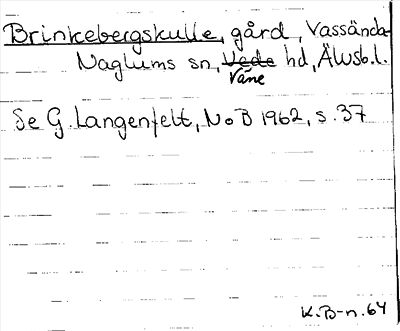 Brinkebergskulle, gård, Vassända-
Naglums sn, Vede hd, Älvsb.l.
Väne
Se G. Langenfelt, NoB 1962, s. 37
K.B-n. 64